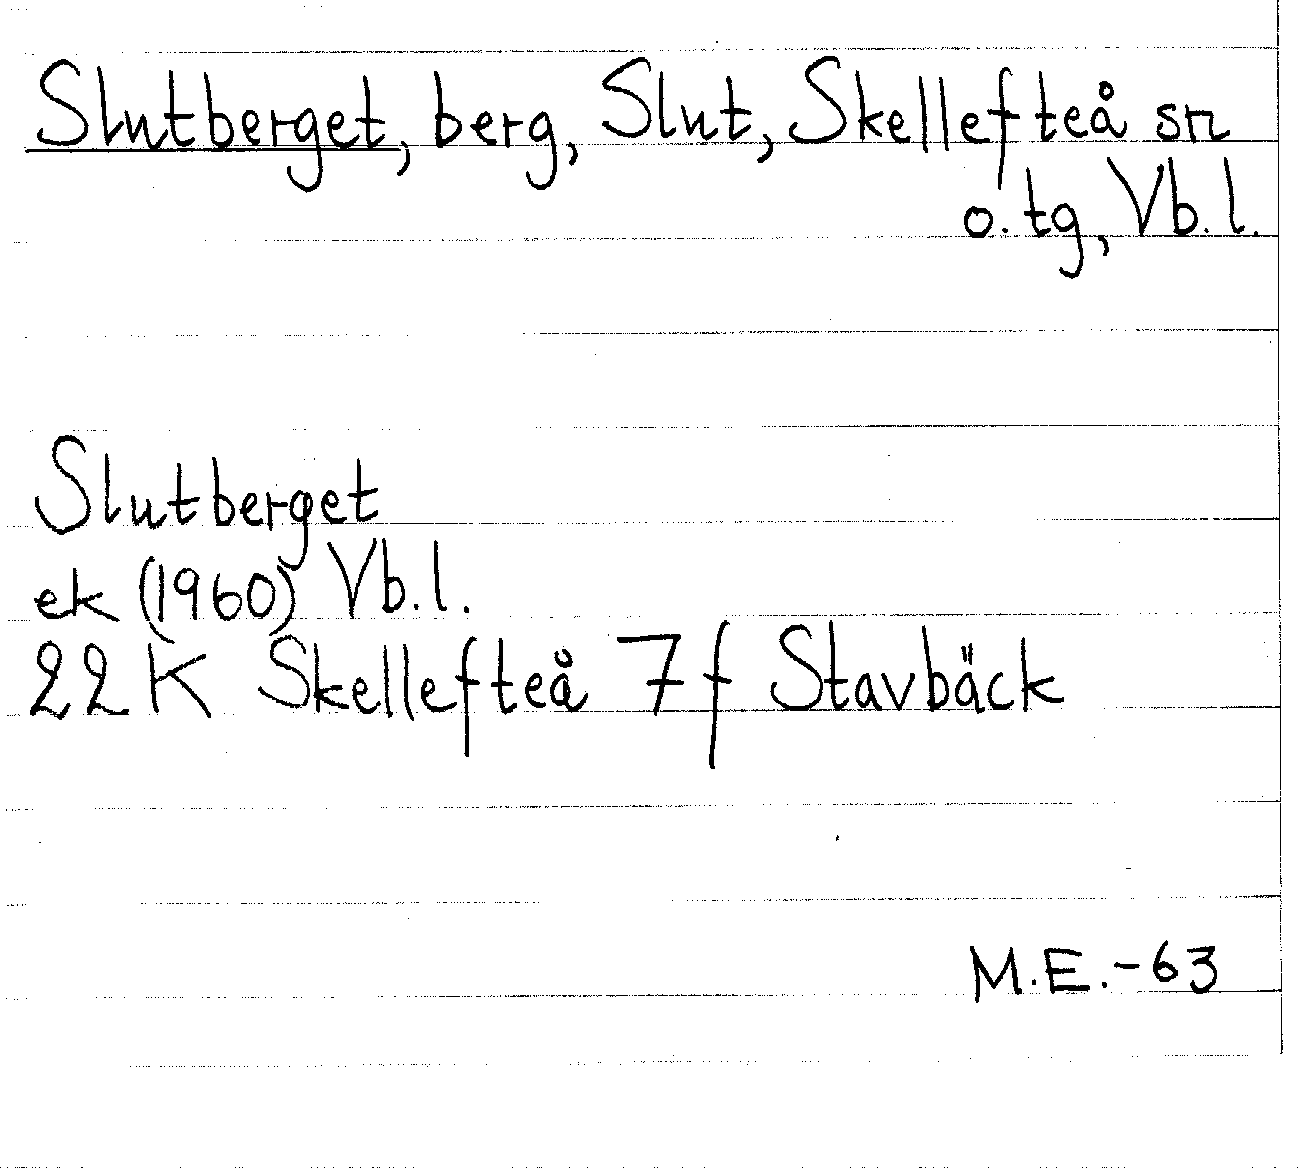 Slutberget, berg, Slut, Skellefteå sn
o. tg, Vb. l.
Slutberget
ek (1960) Vb. l.
22 K Skellefteå 7 f Stavbäck
M.E.-63